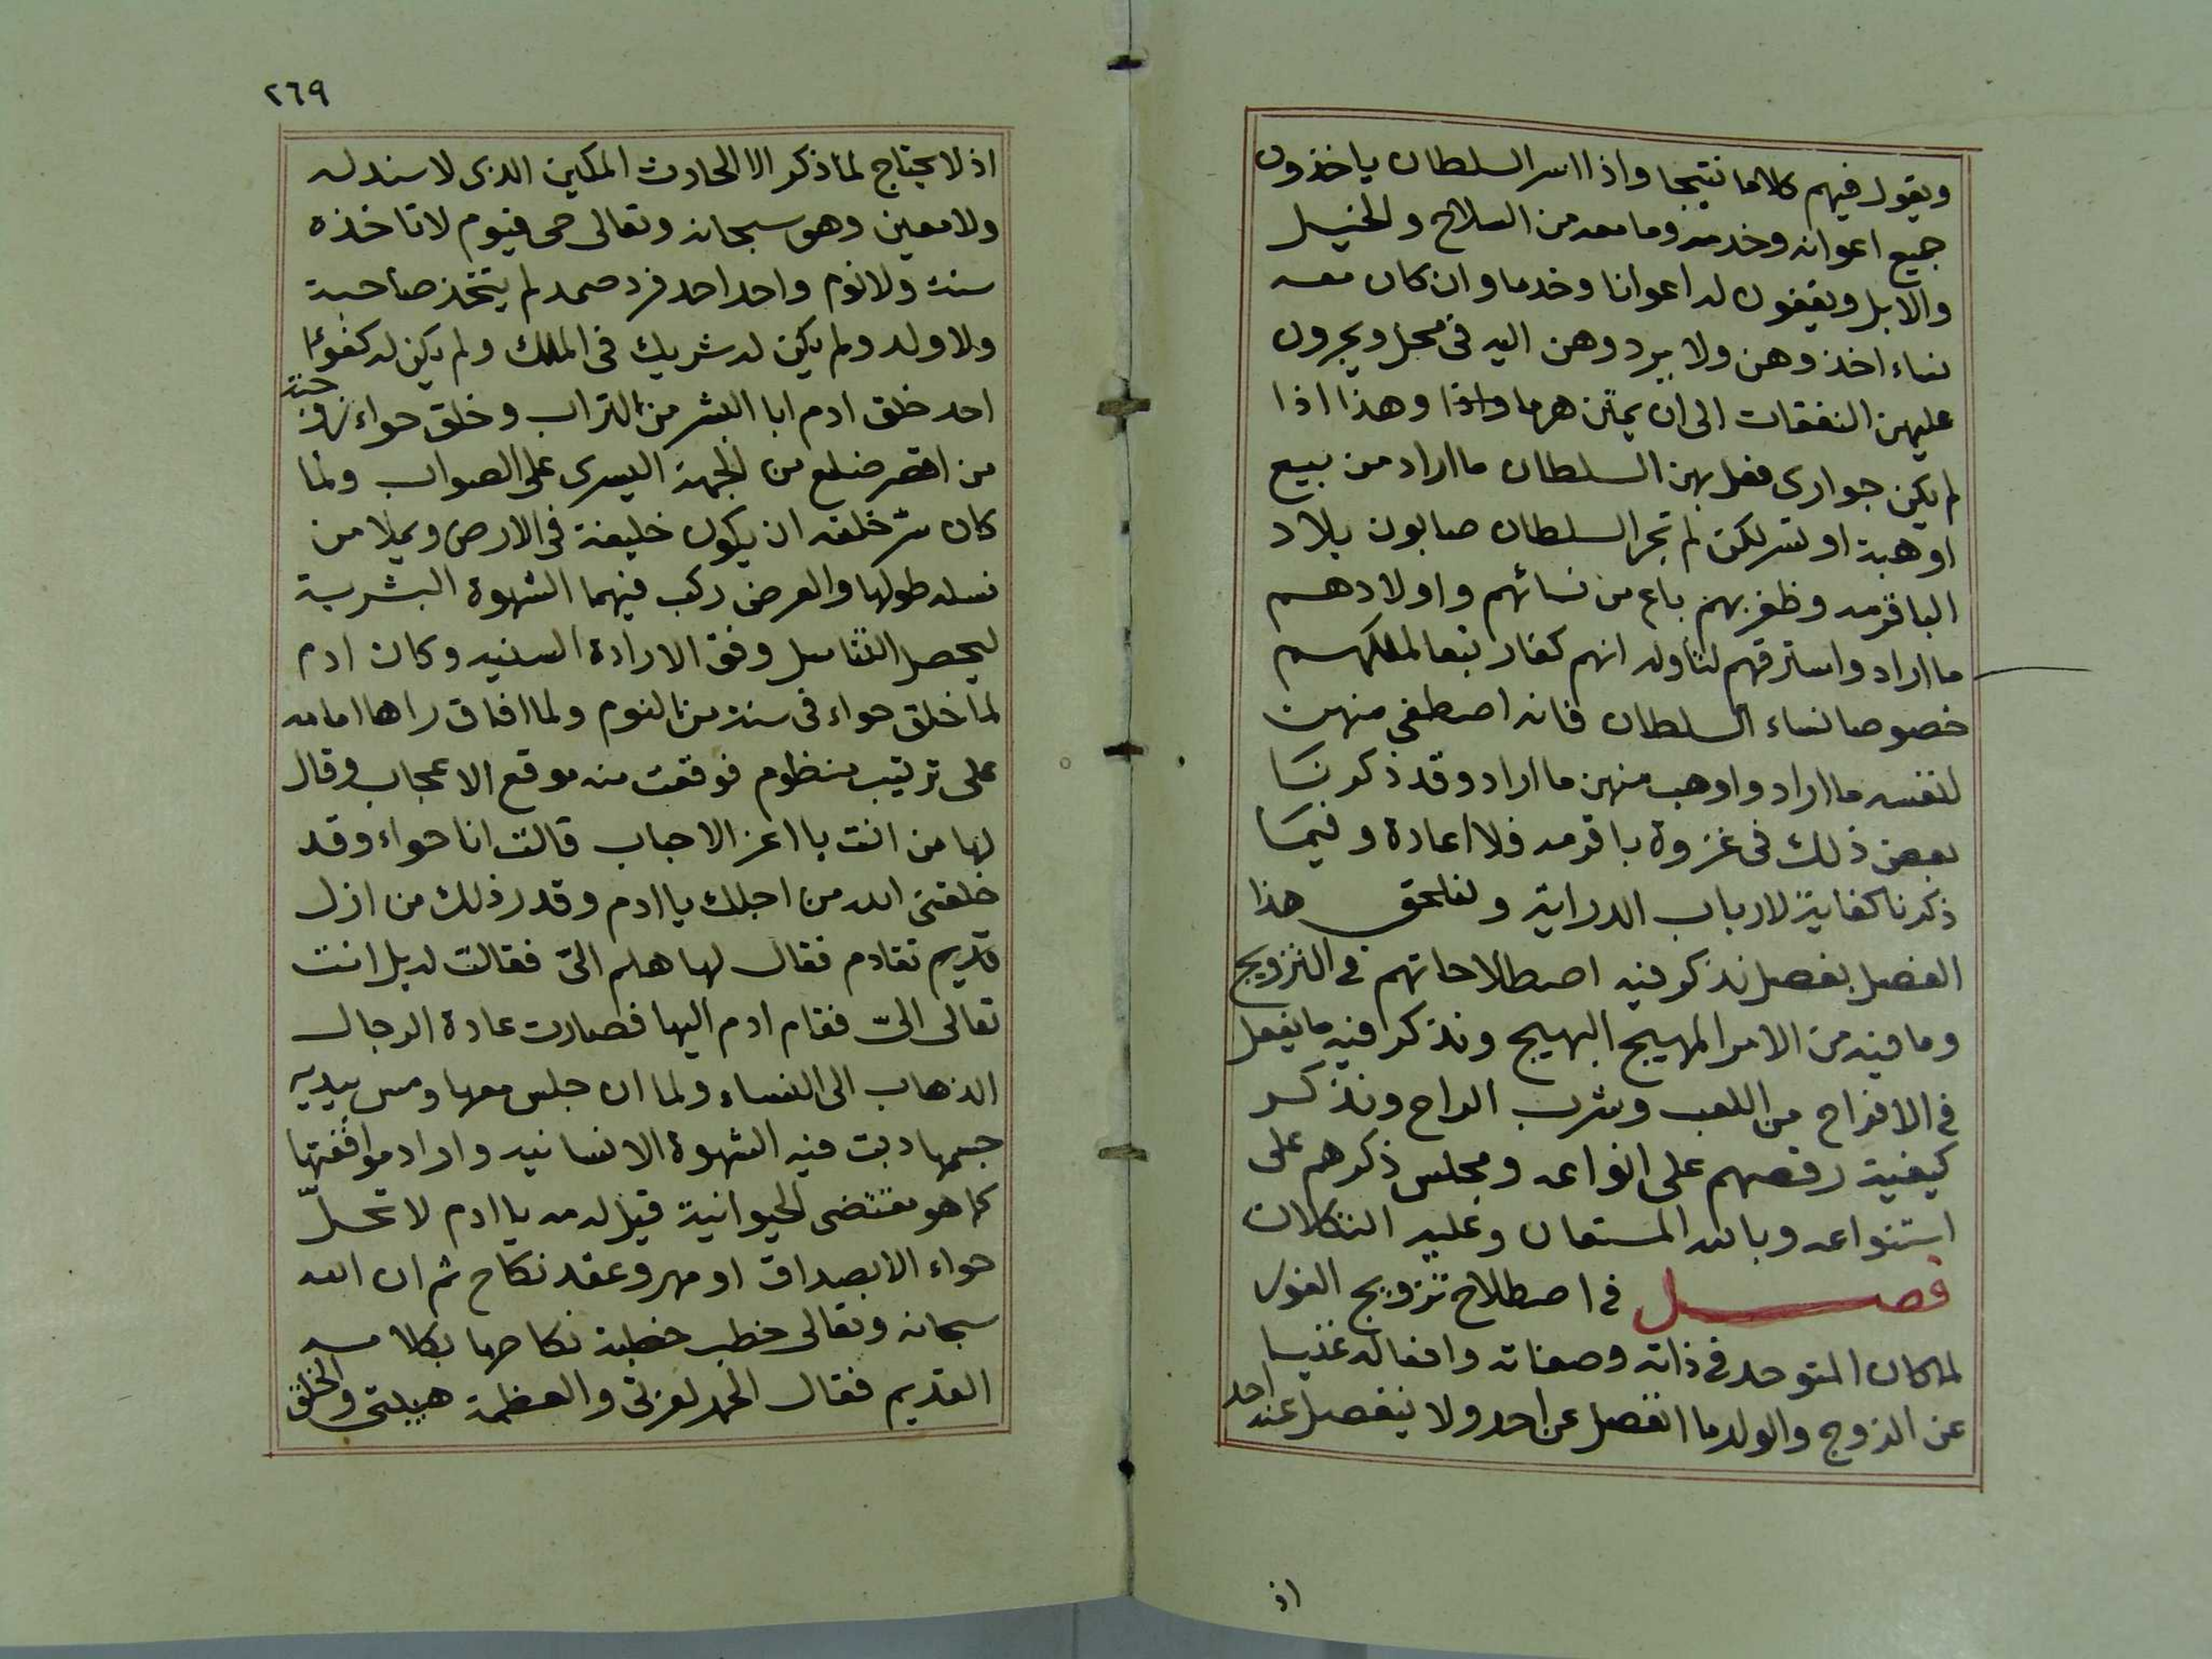 ويقول فيهم كلاما نتيجا واذا اسر السلطان ياخذون
جميع اعوانه وخدمته وما معه من السلاح والخيل
والابل ويقيفون له اعوانا وخدما وان كان معه
نساء اخذوهن ولا يردوهن اليه في محل ويجرون
عليهن النفقات الى ان يمتن هرما وهذا اذا
لم يكن جوارى فعل بهن السلطان ما اراد من بيع
او هبة او تسر لكن لم تجر السلطان صابون بلاد
الباقرمه وظفر بهم باع من نسائهم واولادهم
ما اراد واسترقهم لتاوله انهم كفار تبعا لملكهم
خصوصا نساء السلطان فانه اصطفى منهن
لنفسه ما اراد واوهب منهن ما اراد وقد ذكرنا
بعض ذلك في غزوة باقرمه فلا اعادة وفيما
ذكرنا كفاية لارباب الدراية ولنلحق هذا
الفصل بفصل نذكر فيه اصطلاحاتهم في التزويج
وما فيه من الامر المهيج البهيج ونذكر فيه ما يفعل
في الافراح من اللعب وشرب الراح ونذكر
كيفية رقصهم على انواعه ومجلس ذكرهم على
استنواعه وبالله المستعان وعليه التكلان
فصل في اصطلاح تزويج الفور
لما كان المتوحد في ذاته وصفاته وافعاله غنيا
عن الزوج والولد ما انفصل عن احد ولا ينفصل عنه احد
اذ
٢٦٩
اذ لا يحتاج لما ذكر الا الحادث المكين الذي لا سند له
ولا معين وهو سبحانه وتعالى حى قيوم لا تاخذه
سنة ولا نوم واحد احد فرد صمد لم يتخذ صاحبة
ولا ولد ولم يكن له شريك في الملك ولم يكن له كفوءا
احد خلق ادم ابا البشر من التراب وخلق حواء زوجته
من اقصر ضلع من الجهة اليسرى على الصواب ولما
كان سر خلقه ان يكون خليفة في الارض ويملا من
نسله طولها والعرض ركب فيهما الشهوة البشرية
ليحصل التناسل وفق الارادة السنيه وكان ادم
لما خلق حواء في سنة من النوم ولما افاق راها امامه
على ترتيب منظوم فوقعت منه موقع الاعجاب وقال
لها من انت يا اعز الاحباب قالت انا حواء وقد
خلقنى الله من اجلك يا ادم وقدر ذلك من ازل
قديم تقادم فقال لها هلم الىّ فقالت له بل انت
تعالى الىّ فقام ادم اليها فصارت عادة الرجال
الذهاب الى النساء ولما ان جلس معها ومس بيديه
جسمها دبت فيه الشهوة الانسانيه واراد مواقعتها
كما هو مقتضى الحيوانية قيل له مه يا ادم لا تحلّ
حواء الا بصداق او مهر وعقد نكاح ثم ان الله
سبحانه وتعالى خطب خطبة نكاحها بكلامه
القديم فقال الحمد لعزتى والعظمة هيبتى والخلق